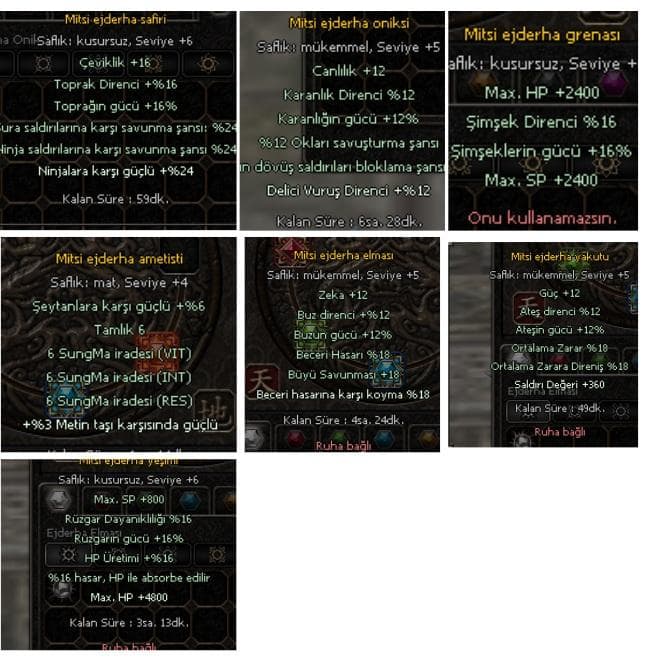 Mitsi ejderha safiri
Saflık: kusursuz, Seviye +6
Çeviklik +16
Toprak Direnci +%16
Toprağın gücü +16%
ura saldırılarına karşı savunma şansı: %24
inja saldırılarına karşı savunma şansı: %24
Ninjalara karşı güçlü +%24
Kalan Süre : 59dk.
Mitsi ejderha oniksi
Saflık: mükemmel, Seviye +5
Canlılık +12
Karanlık Direnci %12
Karanlığın gücü +12%
%12 Okları savuşturma şansı
ın dövüş saldırıları bloklama şansı
Delici Vuruş Direnci +%12
Kalan Süre : 6sa. 28dk.
Mitsi ejderha grenası
aflık: kusursuz, Seviye +
Max. HP +2400
Şimşek Direnci %16
Şimşeklerin gücü +16%
Max. SP +2400
Onu kullanamazsın.
Mitsi ejderha ametisti
Saflık: mat, Seviye +4
Şeytanlara karşı güçlü +%6
Tamlık 6
6 SungMa iradesi (VIT)
6 SungMa iradesi (INT)
6 SungMa iradesi (RES)
+%3 Metin taşı karşısında güçlü
Mitsi ejderha elması
Saflık: mükemmel, Seviye +5
Zeka +12
Buz direnci +%12
Buzun gücü +12%
Beceri Hasarı %18
Büyü Savunması +18
Beceri hasarına karşı koyma %18
Kalan Süre : 4sa. 24dk.
Ruha bağlı
Mitsi ejderha yakutu
Saflık: mükemmel, Seviye +5
Güç +12
Ateş direnci %12
Ateşin gücü +12%
Ortalama Zarar %18
Ortalama Zarara Direniş %18
Saldırı Değeri +360
Ejderha Elması
Kalan Süre : 49dk.
Ruha bağlı
Mitsi ejderha yeşimi
Saflık: kusursuz, Seviye +6
Max. SP +800
Rüzgar Dayanıklılığı %16
Ejderha Elması
Rüzgarın gücü +16%
HP Üretimi +%16
%16 hasar, HP ile absorbe edilir
Max. HP +4800
Kalan Süre : 3sa. 13dk.
Ruha bağlı